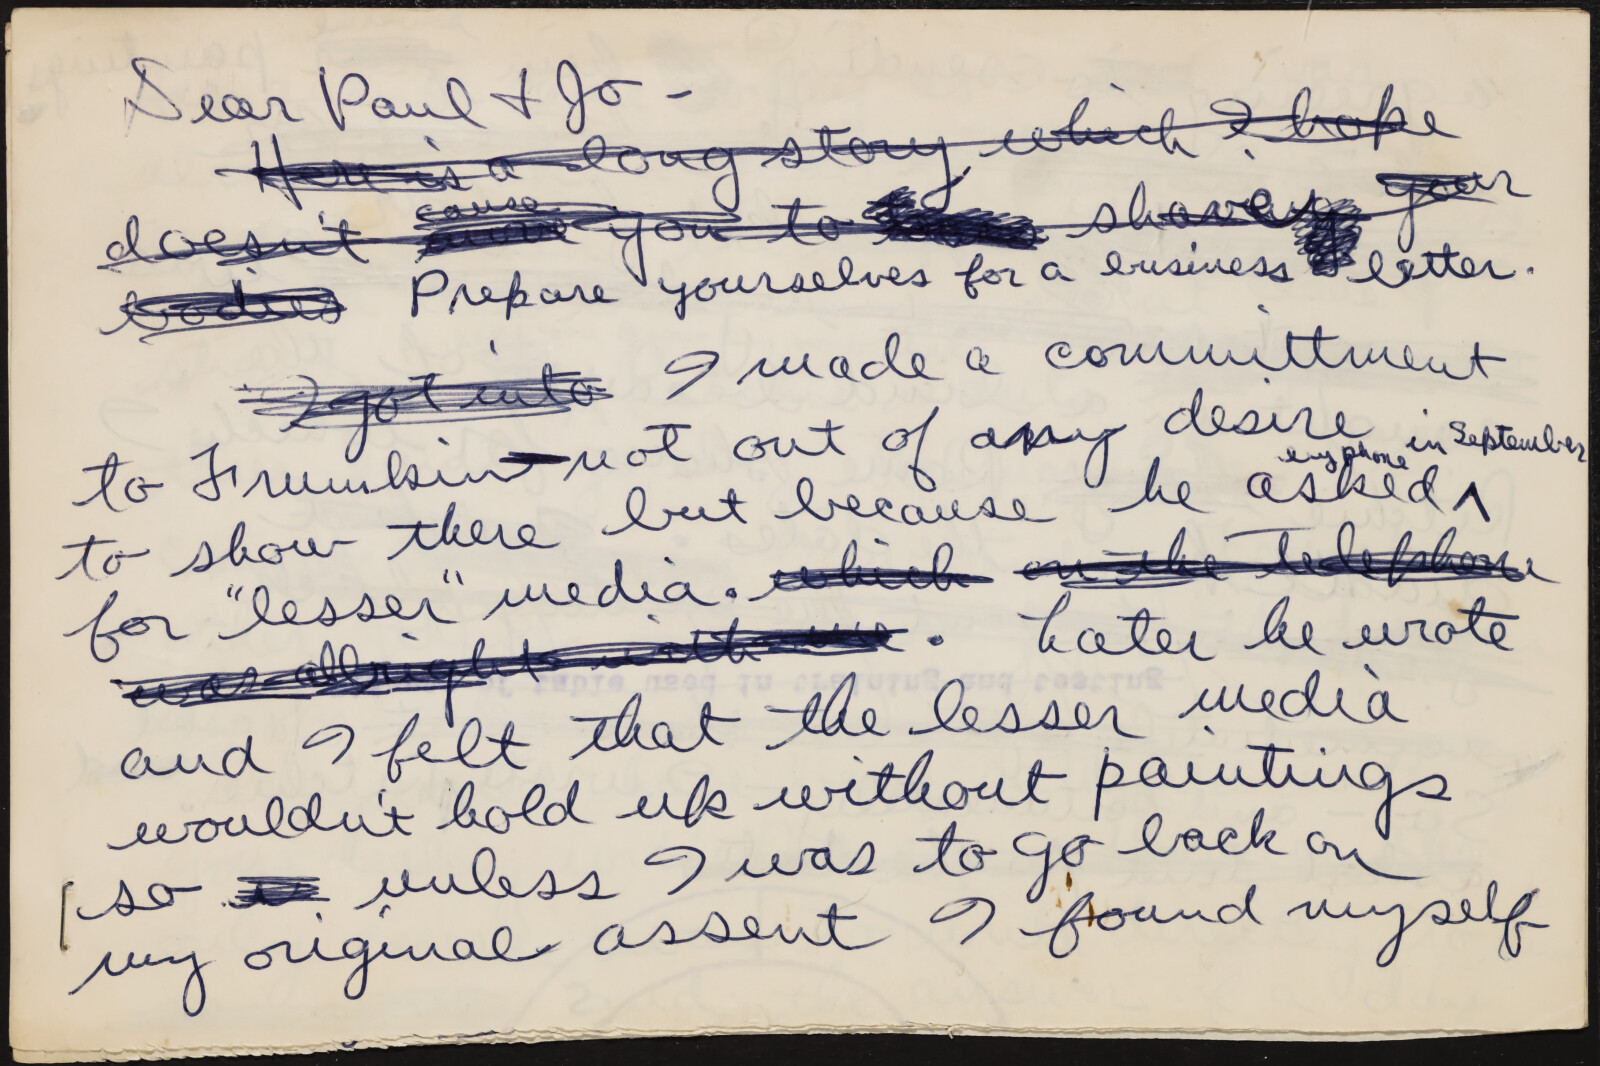 Dear Paul & Jo -
Here is a long story which I hope
doesn't cause you to shorten your
bodies Prepare yourselves for a business letter.
I got into I made a committment
to Frumkin - not out of any desire
by phone in September
to show there but because he asked ^
for "lesser" media. which on the telephone
was allright with me. Later he wrote
and I felt that the lesser media
wouldn't hold up without paintings
so unless I was to go back on
my original assent I found myself